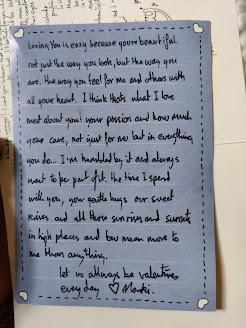 Loving You is easy because you're beautiful.
not just the way you look, but the way you
are. the way you feel for me and others with
all your heart. I think that's what I love
most about you! your passion and how much
you care, not just for me but in everything
you do... I'm humbled by it and always
want to be part of it. the time I spend
with you, your gentle hugs our sweet
kisses and all those sunrises and sunsets
in high places and low mean more to
me than anything.
let us always be valentines
every day ♡